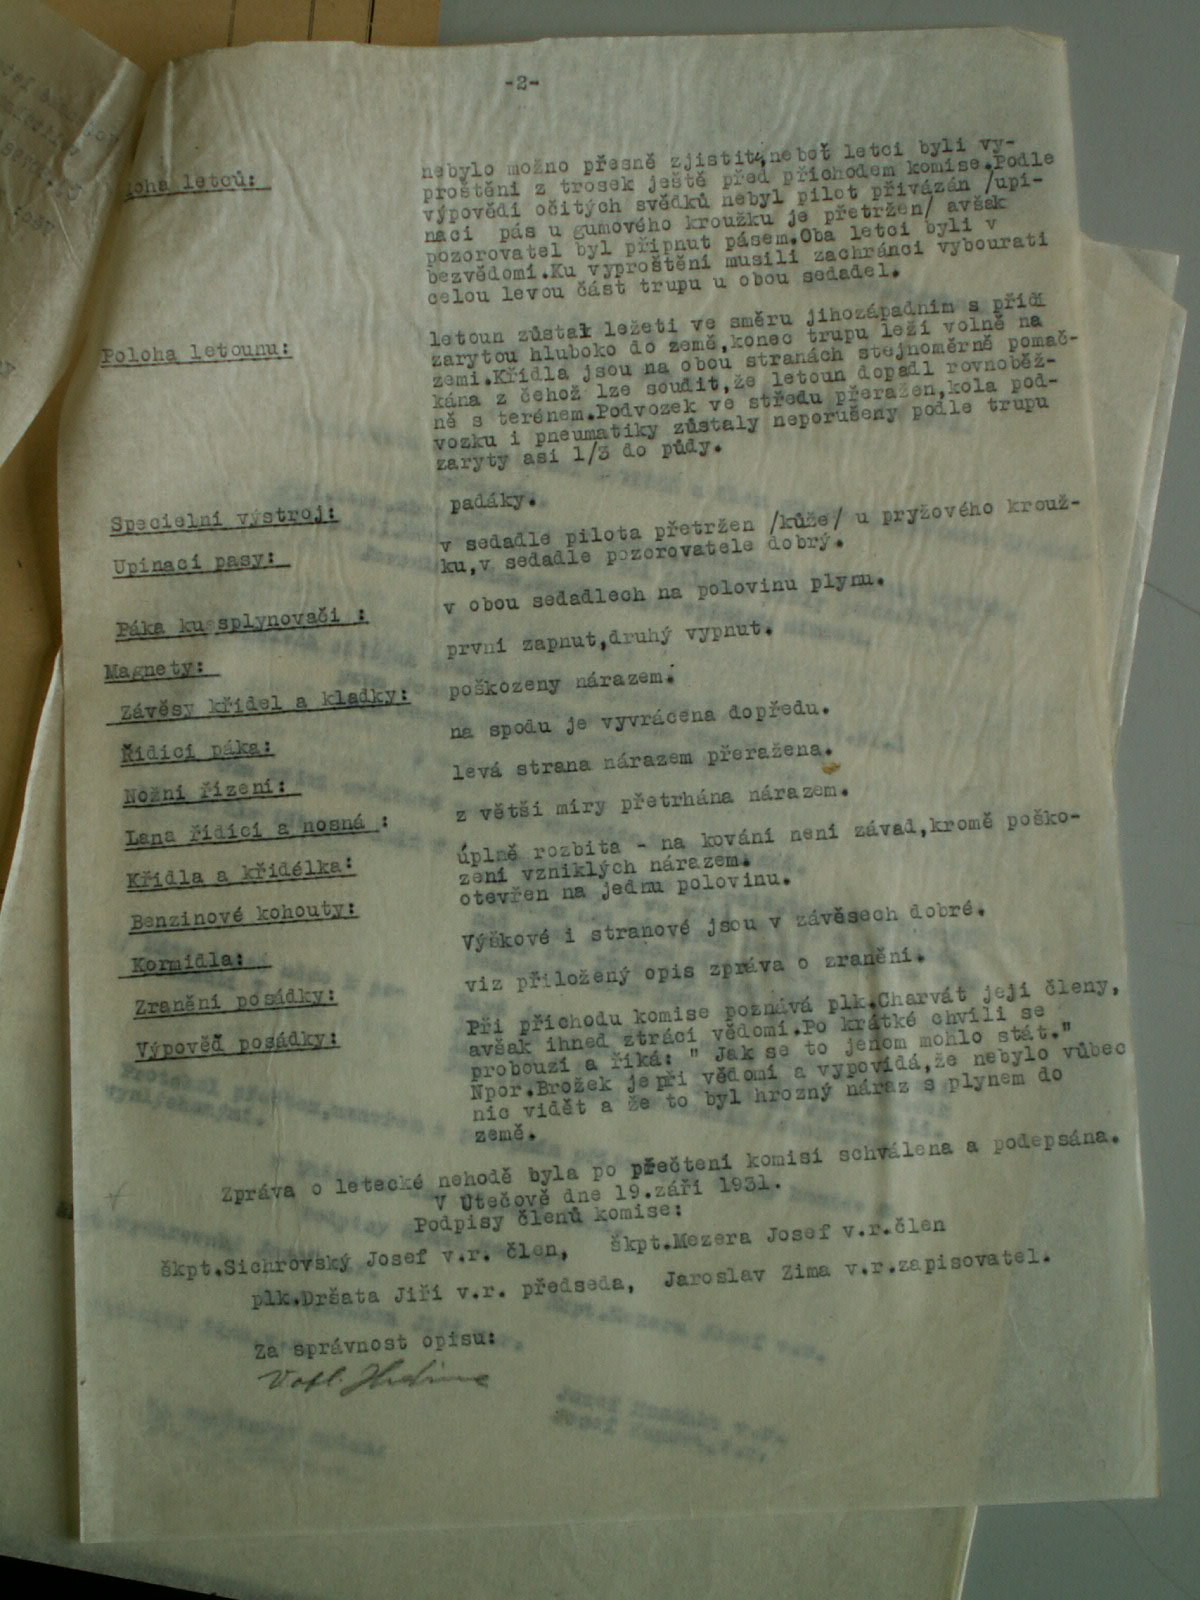 -2-
loha letců: nebylo možno přesně zjistit, neboť letci byli vy-
proštěni z trosek ještě před příchodem komise.Podle
výpovědí očitých svědků nebyl pilot přivázán /upí-
nací pás u gumového kroužku je přetržen/ avšak
pozorovatel byl připnut pásem.Oba letci byli v
bezvědomí.Ku vyproštění musili zachránci vybourati
celou levou část trupu u obou sedadel.
Poloha letounu: letoun zůstal ležeti ve směru jihozápadním s přídí
zarytou hluboko do země,konec trupu leží volně na
zemi.Křídla jsou na obou stranách stejnoměrně pomač-
kána z čehož lze soudit,že letoun dopadl rovnoběž-
ně s terénem.Podvozek ve středu přeražen,kola pod-
vozku i pneumatiky zůstaly neporušeny podle trupu
zaryty asi 1/3 do půdy.
Specielní výstroj: padáky.
Upínací pasy: v sedadle pilota přetržen /kůže/ u pryžového krouž-
ku,v sedadle pozorovatele dobrý.
Páka ku splynovači : v obou sedadlech na polovinu plynu.
Magnety: první zapnut,druhý vypnut.
Závěsy křídel a kladky: poškozeny nárazem.
Řídící páka: na spodu je vyvrácena dopředu.
Nožní řízení: levá strana nárazem přeražena.
Lana řídící a nosná : z větší míry přetrhána nárazem.
Křídla a křidélka: úplně rozbita - na kování není závad,kromě poško-
zení vzniklých nárazem.
Benzinové kohouty: otevřen na jednu polovinu.
Kormidla: Výškové i stranové jsou v závěsech dobré.
Zranění posádky: viz přiložený opis zpráva o zranění.
Výpověď posádky: Při příchodu komise poznává plk.Charvát její členy,
avšak ihned ztrácí vědomí.Po krátké chvíli se
probouzí a říká: " Jak se to jenom mohlo stát."
Npor.Brožek je při vědomí a vypovídá,že nebylo vůbec
nic vidět a že to byl hrozný náraz s plynem do
země.
Zpráva o letecké nehodě byla po přečtení komisí schválena a podepsána.
V Útěčově dne 19.září 1931.
Podpisy členů komise:
škpt.Sichrovský Josef v.r. člen, škpt.Mezera Josef v.r.člen
plk.Dršata Jiří v.r. předseda, Jaroslav Zima v.r.zapisovatel.
Za správnost opisu: